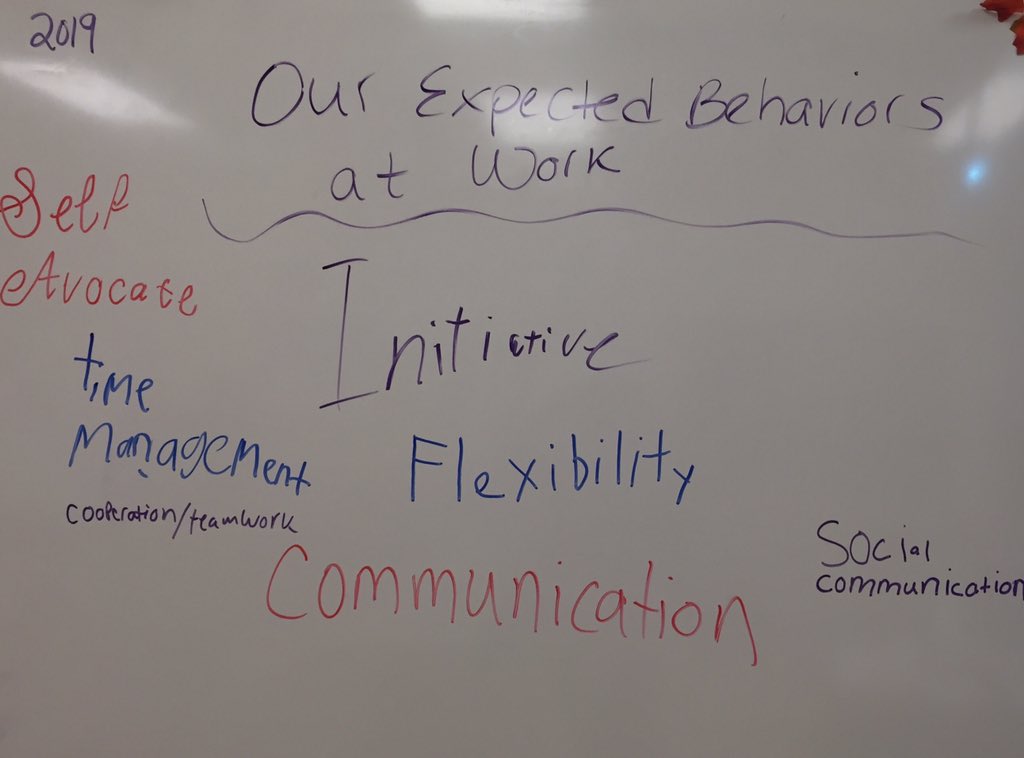 2019
Our Expected Behaviors
at Work
Self
Avocate
Initiative
time
Management
Flexibility
Cooperation/teamwork
Communication
Social
communication